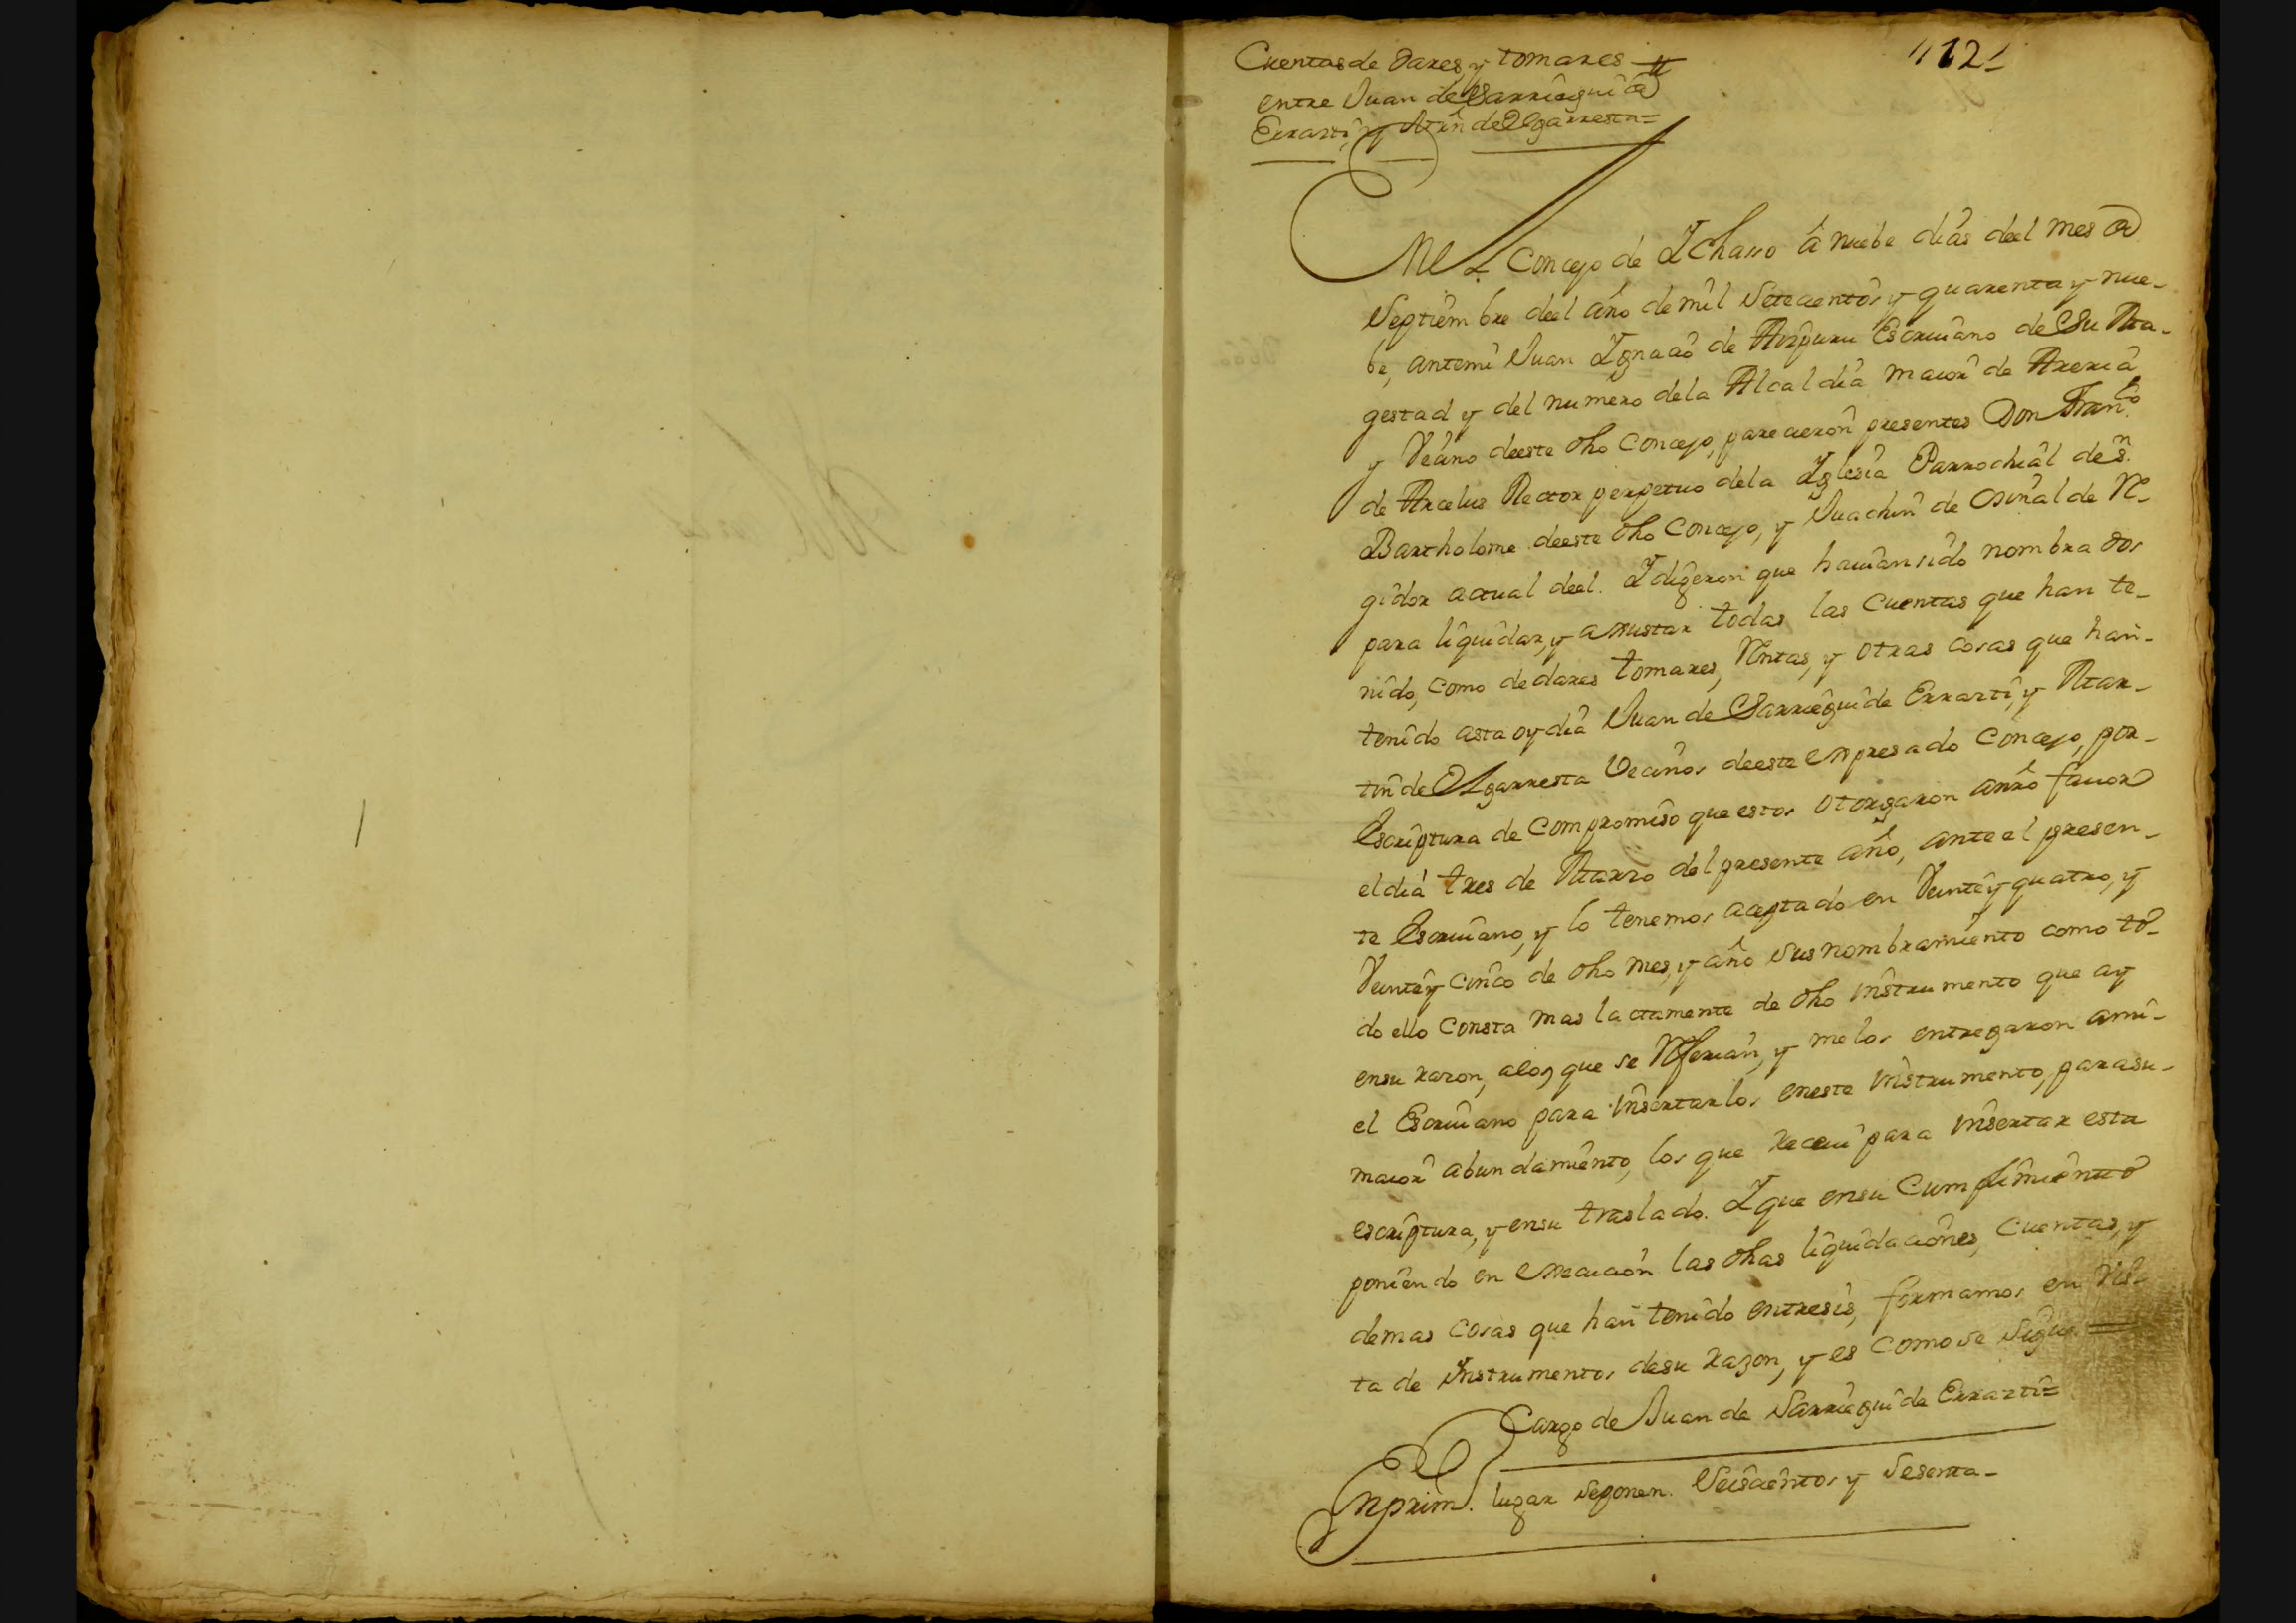 112
Cuentas de dares, y tomares
entre Juan de Sarriegui de
Errazti, y Mrn de Olgarresta =
En el Concejo de Ychasso â nuebe dîas deel mes de
Septiembre deel año de mil setecientos y quarenta y nue-
be, antemi Juan Ygnacio de Aizpuru Escriuano de Su Ma-
gestad y del numero dela Alcaldîa maior de Areria
y Vecino deeste dho Concejo, parecieron presentes Don Franco
de Arcelus Rector perpetuo dela Yglesia Parrochial de Sn.
Bartholome deeste dho Concejo, y Juachin de Osinalde Re-
gidor actual deel. Y digeron que hauian sido nombrados
para liquidar, y ajustar todas las Cuentas que han te-
nido, como de dares tomares, Rentas, y otras cosas que han-
tenido asta oy dia Juan de Sarriegui de Errazti, y Mar-
tin de Olgarresta Vecinos deeste expresado Concejo, por-
Escriptura de Compromiso que estos otorgaron anro fauor
el dia tres de Marzo del presente año, ante el presen-
te Escriuano, y lo tenemos aceptado en Veinte y quatro, y
Veinte y cinco de dho mes, y año sus nombramiento como to-
do ello Consta mas lactamente de dho instrumento que ay
ensu razon, alos que se Referian, y melos entregaron ami-
el Escriuano para insertarlos eneste instrumento, parasu-
maior abundamiento, los que Receui para insertar esta
escriptura, y ensu traslado. Y que ensu Cumplimiento
poniendo en execucion las dhas liquidaciones, Cuentas, y
demas cosas que han tenido entresis, formamos en Vis-
ta de instrumentos desu razon, y es como se sigue =
Cargo de Juan de Sarriegui de Errazti =
Enprim. lugar seponen. Seiscientos y sesenta-